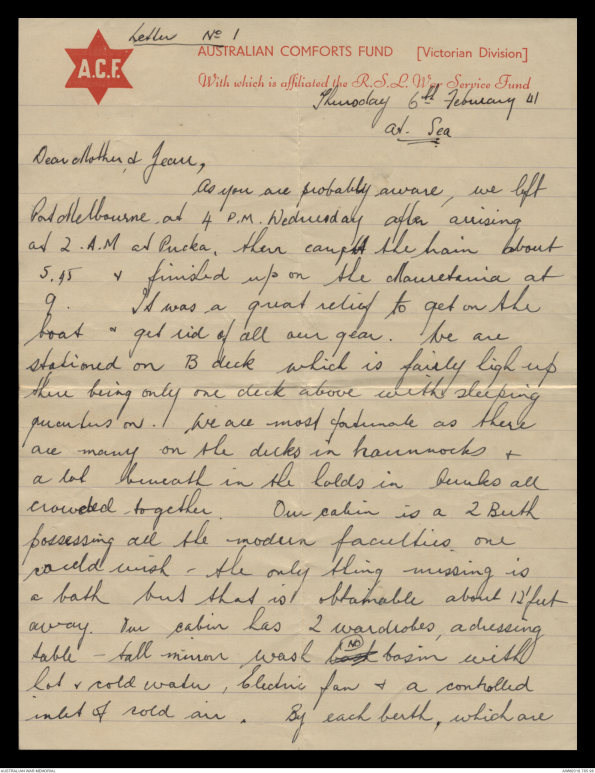 Letter No 1
A.C.F.
AUSTRALIAN COMFORTS FUND [Victorian Division]
With which is affiliated the R.S.L. War Service Fund
Thursday 6th February 41
At Sea
Dear Mother & Jean,
As you are probably aware, we left
Port Melbourne at 4 P.M. Wednesday after arising
at 2. A.M at Pucka, then caught the train about
5.45 & finished up on the Mauretania at
9. It was a great relief to get on the
boat & get rid of all our gear. We are
stationed on B deck which is fairly high up
there being only one deck above with sleeping
quarters on. We are most fortunate as there
are many on the decks in hammocks &
a lot beneath in the holds in bunks all
crowded together. Our cabin is a 2 Berth
possessing all the modern faculties one
could wish - the only thing missing is
a bath but that is obtainable about 12 feet
away. Our cabin has 2 wardrobes, a dressing
table - tall mirror wash NO basin with
hot & cold water, Electric fan & a controlled
inlet of cold air. By each berth, which are
AUSTRALIAN WAR MEMORIAL